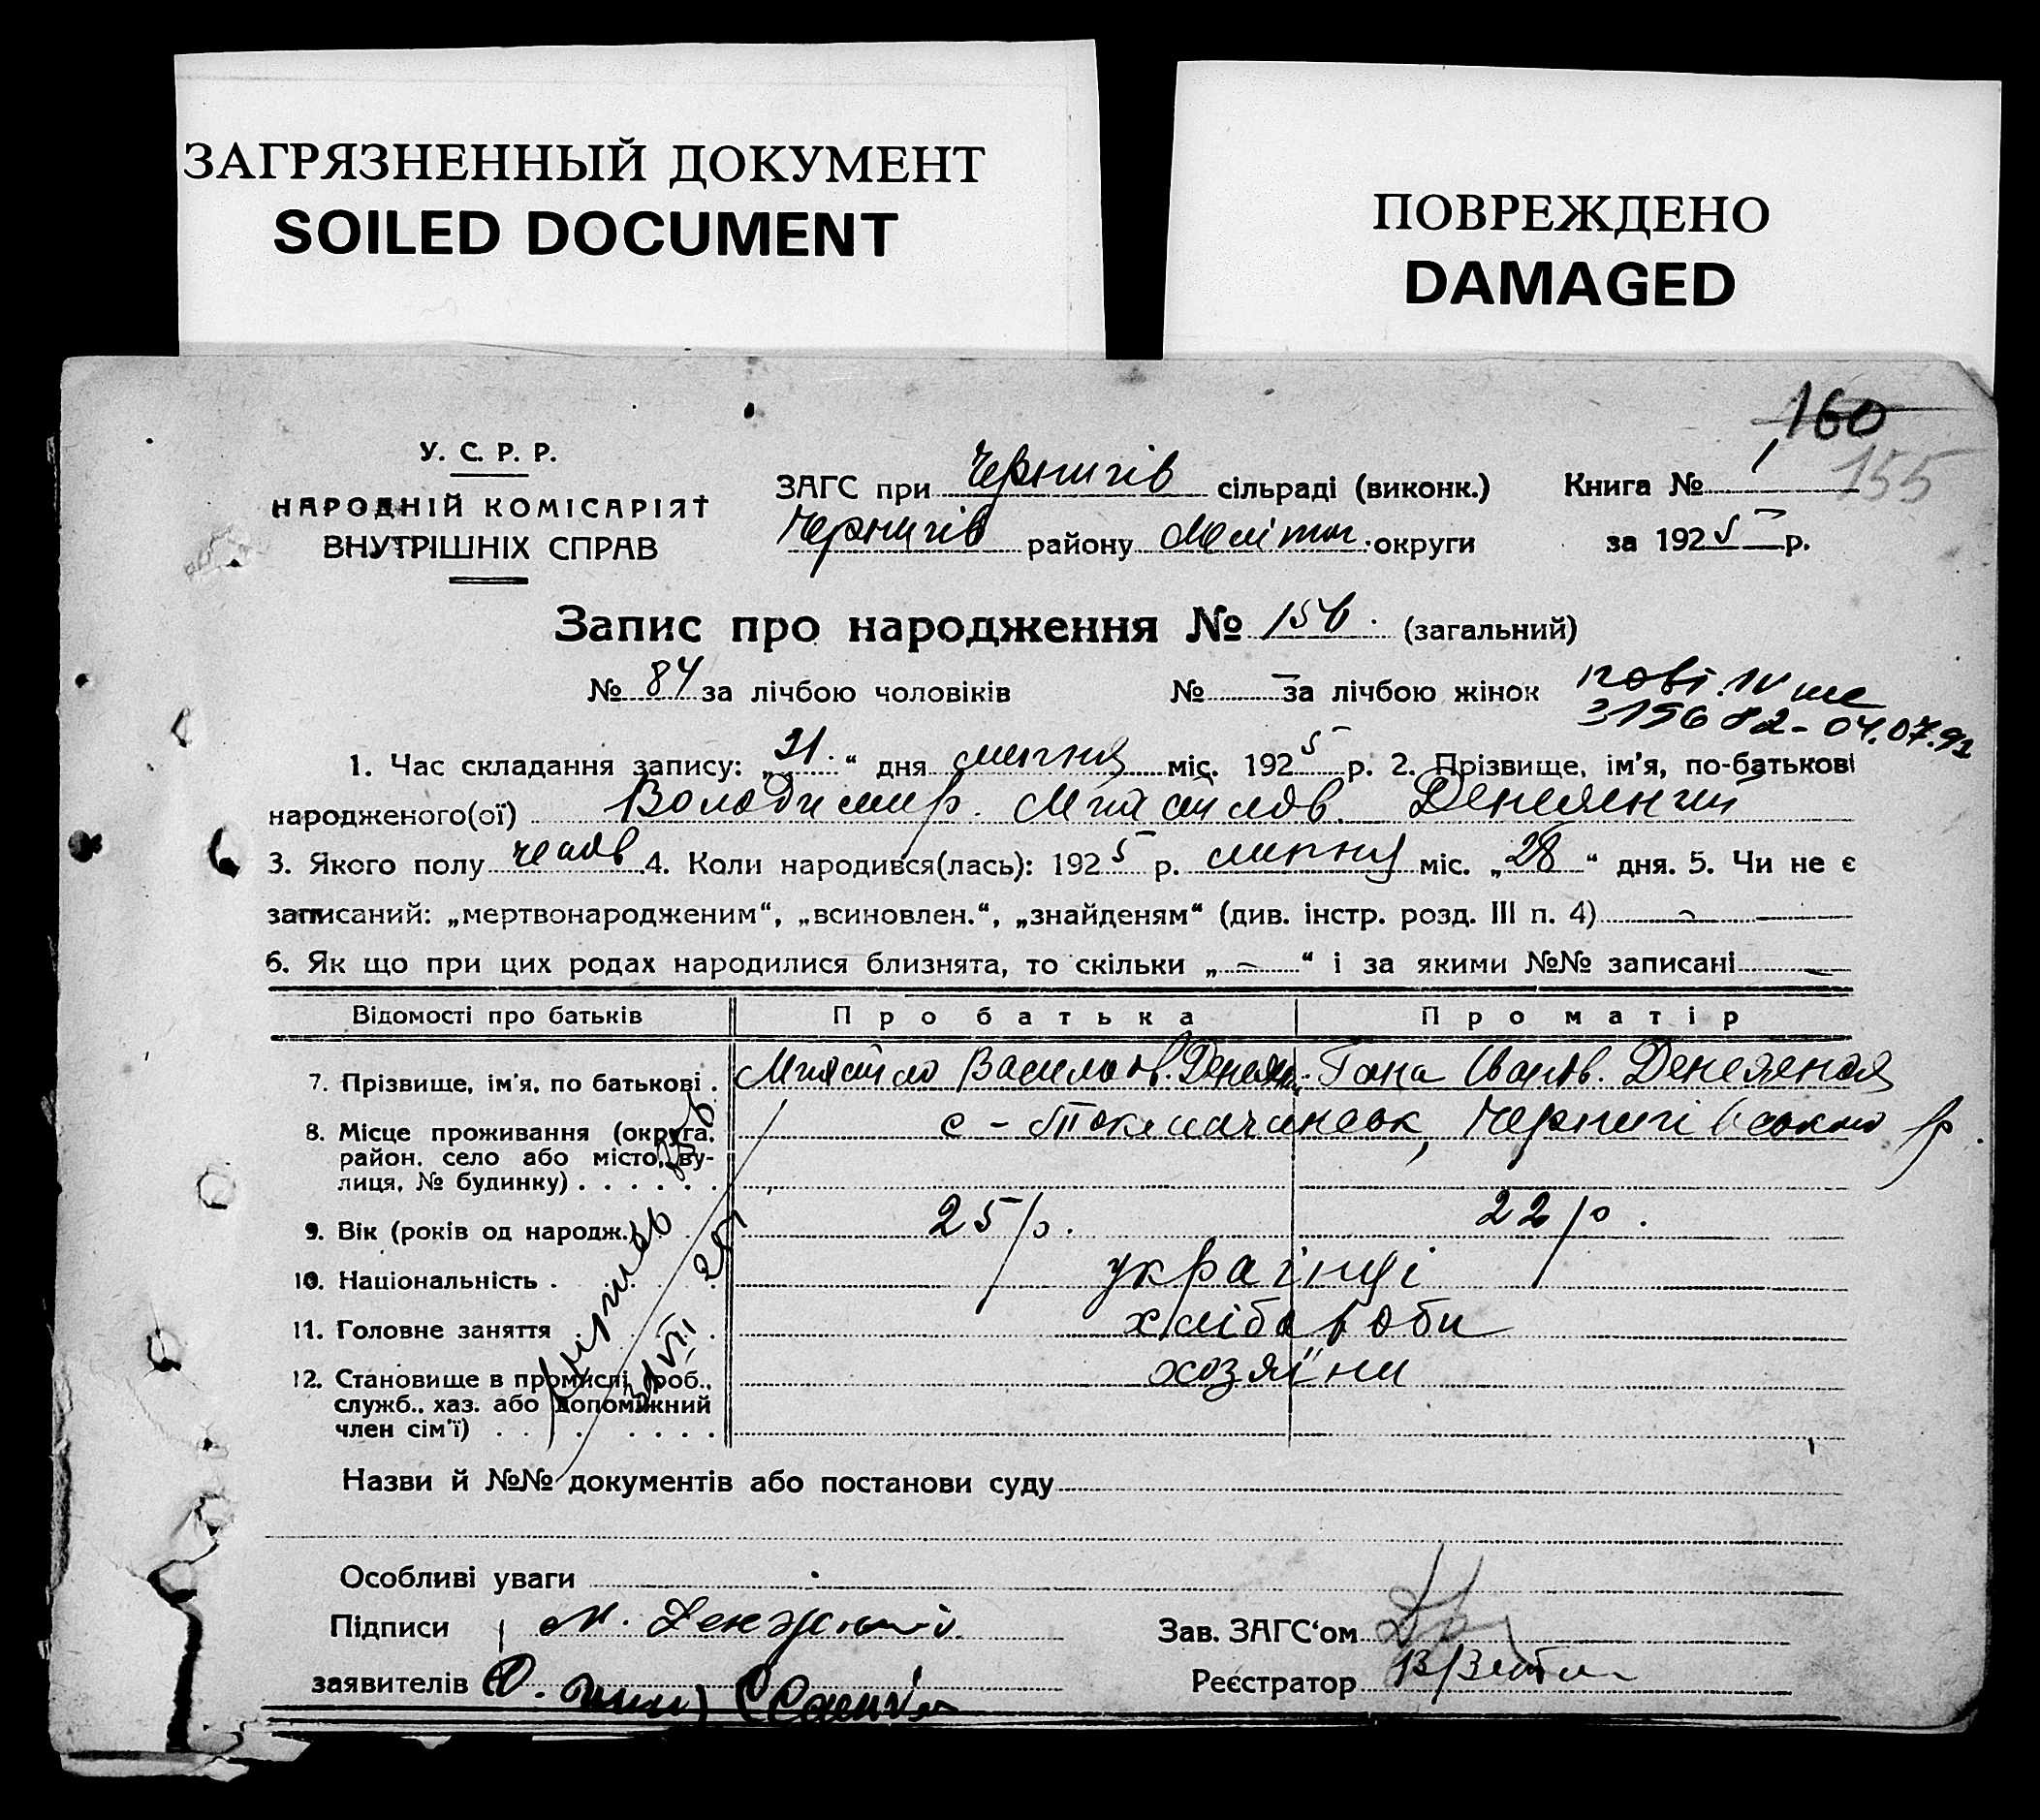 ЗАГРЯЗНЕННЫЙ ДОКУМЕНТ
SOILED DOCUMENT
ПОВРЕЖДЕНО
DAMAGED
160
155
У. С. Р. Р.
НАРОДНІЙ КОМІСАРІЯТ
ВНУТРІШНІХ СПРАВ
ЗАГС при Чернигів сільраді (виконк.) Книга № 1
Чернигів району Меліт. округи за 1925 р.
Запис про народження № 156. (загальний)
№ 84 за лічбою чоловіків № — за лічбою жінок
319682-04.07.92
1. Час складання запису: „31.“ дня липня міс. 1925 р. 2. Прізвище, ім'я, по-батькові
народженого(ої) Володимир. Михайлов.
3. Якого полу чолов. 4. Коли народився(лась): 1925 р. липня міс. „28“ дня. 5. Чи не є
записаний: „мертвонародженим“, „всиновлен.“, „знайденям“ (див. інстр. розд. III п. 4) —
6. Як що при цих родах народилися близнята, то скільки „—“ і за якими №№ записані —
Відомості про батьків Про батька Про матір
7. Прізвище, ім'я, по батькові. Михайло Васильов. Ганна Іванов.
8. Місце проживання (округа, район, село або місто, вулиця, № будинку) с-Токмачанськ, Чернигівського р.
9. Вік (років од народж.) 25 р. 22 р.
10. Національність. українці
11. Головне заняття хлібороби
12. Становище в промислі (роб., служб., хаз. або допоміжний член сім'ї) хозяїни
31/VII 25
Назви й №№ документів або постанови суду
Особливі уваги
Підписи Зав. ЗАГС'ом
заявителів Реєстратор